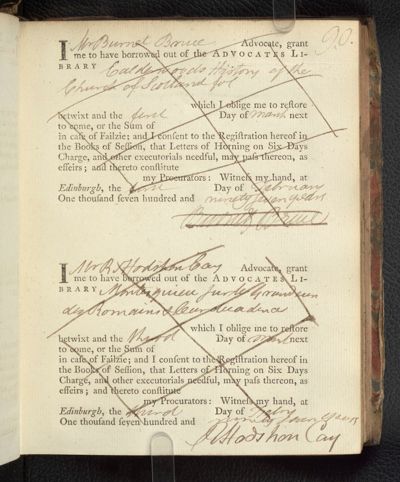 90.
I Mr Burnet Bruce Advocate, grant
me to have borrowed out of the ADVOCATES LI-
BRARY Calderwoods History of the
Church of Scotland fol
which I oblige me to reſtore
betwixt and the first Day of March next
to come, or the Sum of
in caſe of Failzie; and I conſent to the Regiſtration hereof in
the Books of Seſſion, that Letters of Horning on Six Days
Charge, and other executorials needful, may paſs thereon, as
effeirs; and thereto conſtitute
my Procurators: Witneſs my hand, at
Edinburgh, the first Day of February
One thouſand ſeven hundred and ninety seven years
Burnet Bruce
I Mr R. Hodshon Cay Advocate, grant
me to have borrowed out of the ADVOCATES LI-
BRARY Montesquieu sur le Grandeur
des Romains & leur decadence
which I oblige me to reſtore
betwixt and the third Day of March next
to come, or the Sum of
in caſe of Failzie; and I conſent to the Regiſtration hereof in
the Books of Seſſion, that Letters of Horning on Six Days
Charge, and other executorials needful, may paſs thereon, as
effeirs; and thereto conſtitute
my Procurators: Witneſs my hand, at
Edinburgh, the third Day of Feby
One thouſand ſeven hundred and ninety seven years
R Hodshon Cay